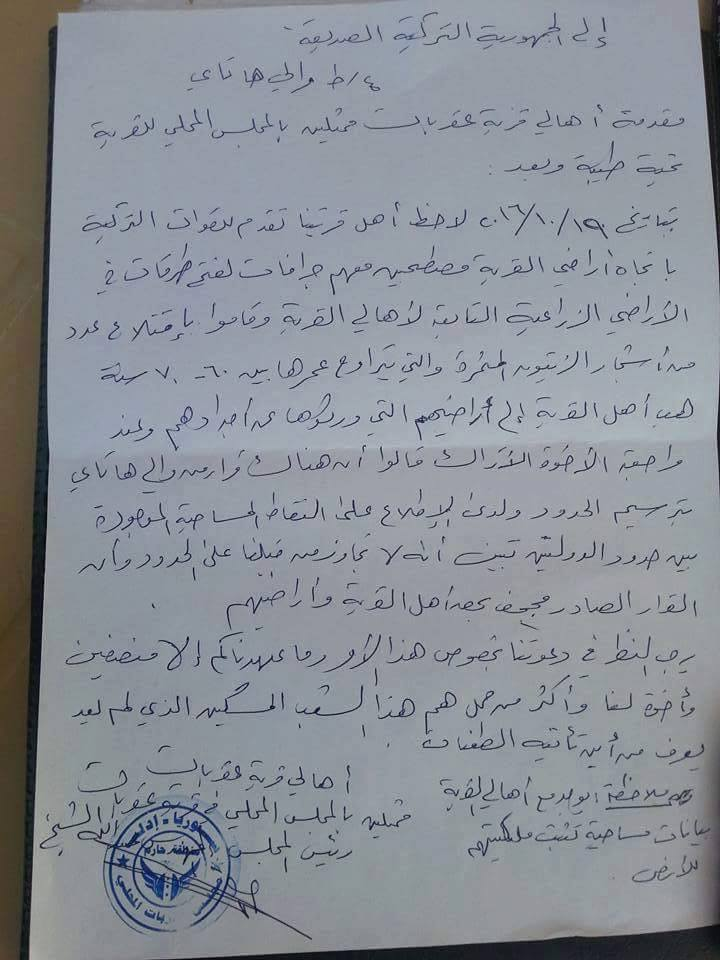 إلى الجمهورية التركية الصديقة
ط/ع والي هاتاي
مقدمة أهالي قرية عقربات ممثلين بالمجلس المحلي للقرية
تحية طيبة وبعد :
بتاريخ ٢٠١٦/١٠/١٩ لاحظ أهل قريتنا تقدم للقوات التركية
باتجاه أراضي القرية مصطحبين معهم جرافات لفتح طرقات في
الأراضي الزراعية التابعة لأهالي القرية وقاموا بإقتلاع عدد
من أشجار الزيتون المثمرة والتي يتراوح عمرها بين ٦٠-٧٠ سنة
هب أهل القرية إلى أراضيهم التي ورثوها عن أجدادهم وعند
مراجعة الأخوة الأتراك قالوا أن هناك قرار من والي هاتاي
بترسيم الحدود ولدى الإطلاع على النقاط المساحية الموجودة
بين حدود الدولتين تبين أنه لا تجاوز من قبلنا على الحدود وأن
القرار الصادر مجحف بحق أهل القرية وأراضيهم .
يرجى النظر في دعوتنا بخصوص هذا الأمر وما عهدناكم إلا منصفين
وأخوة لنا وأكثر من حمل هم هذا الشعب المسكين الذي لم يعد
يعرف من أين تأتيه الطعنات .
أهالي قرية عقربات
ممثلين بالمجلس المحلي في قرية عقربات
رئيس المجلس
ملاحظة: يوجد مع أهالي القرية
بيانات مساحية تثبت ملكيتهم
للأرض .